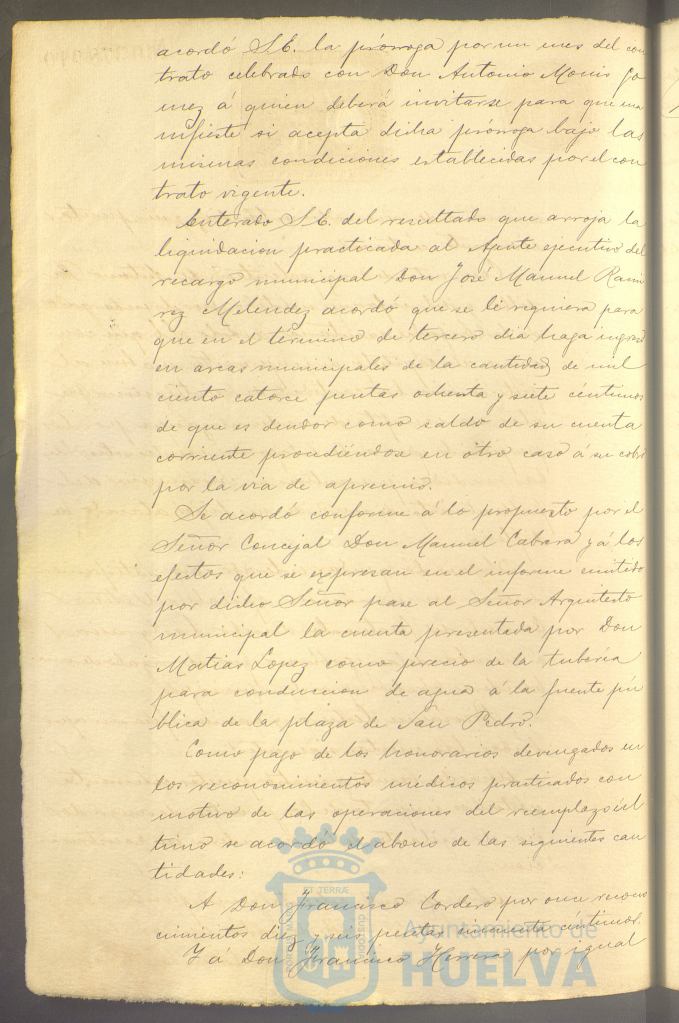 acordó S.E. la prórroga por un mes del con
trato celebrado con Don Antonio Monis Go
mez á quien deberá invitarse para que ma
nifieste si acepta dicha prórroga bajo las
mismas condiciones establecidas por el con
trato vigente.
Enterado S.E. del resultado que arroja la
liquidacion practicada al Agente ejecutivo del
recargo municipal Don José Manuel Rami
rez Melendez acordó que se le requiera para
que en el término de tercero dia haga ingreso
en arcas municipales de la cantidad de mil
ciento catorce pesetas ochenta y siete céntimos
de que es deudor como saldo de su cuenta
corriente procediéndose en otro caso á su cobro
por la via de apremio.
Se acordó conforme á lo propuesto por el
Señor Concejal Don Manuel Cabara y á los
efectos que se expresan en el informe emitido
por dicho Señor pase al Señor Arquitecto
municipal la cuenta presentada por Don
Matias Lopez como precio de la tubería
para conduccion de agua á la fuente pú
blica de la plaza de San Pedro.
Como pago de los honorarios devengados en
los reconocimientos médicos practicados con
motivo de las operaciones del reemplazo úl
timo se acordó el abono de las siguientes can
tidades:
A Don Francisco Cordero por once recono
cimientos diez y seis pesetas cincuenta céntimos.
Y a Don Francisco Herrera por igual
Ayuntamiento de
HUELVA